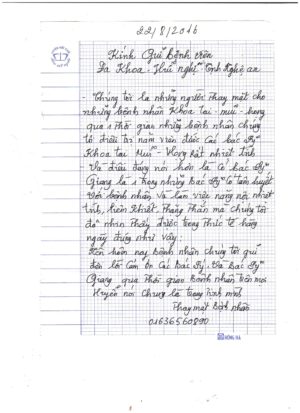 22/8/2016
Kính Gửi Bệnh viện
Đa Khoa - Hữu nghị Tỉnh Nghệ an
- Chúng tôi là những người thay mặt cho
những bệnh nhân Khoa tai - mũi - họng
qua 1 thời gian những bệnh nhân chúng
tôi điều trị nằm viện được Các bác sỹ
Khoa tai Mũi - Họng Rất nhiệt tình
Và điều đáng nói hơn là Có bác Sỹ
Giang là 1 trong những Bác Sỹ Có tâm huyết
Với bệnh nhân Và làm việc năng nổ, nhiệt
tình, liêm khiết, thẳng thắn mà chúng tôi
đã nhìn thấy được trong thực tế hàng
ngày đúng như vậy:
Nên hôm nay Bệnh nhân chúng tôi gửi
đến lời Cảm ơn Các Bác Sỹ Và Bác Sỹ
Giang qua thời gian Bệnh nhân trên mọi
nói Chung là trong tỉnh mình
Thay mặt Bệnh nhân
01636560890
HỒNG HÀ